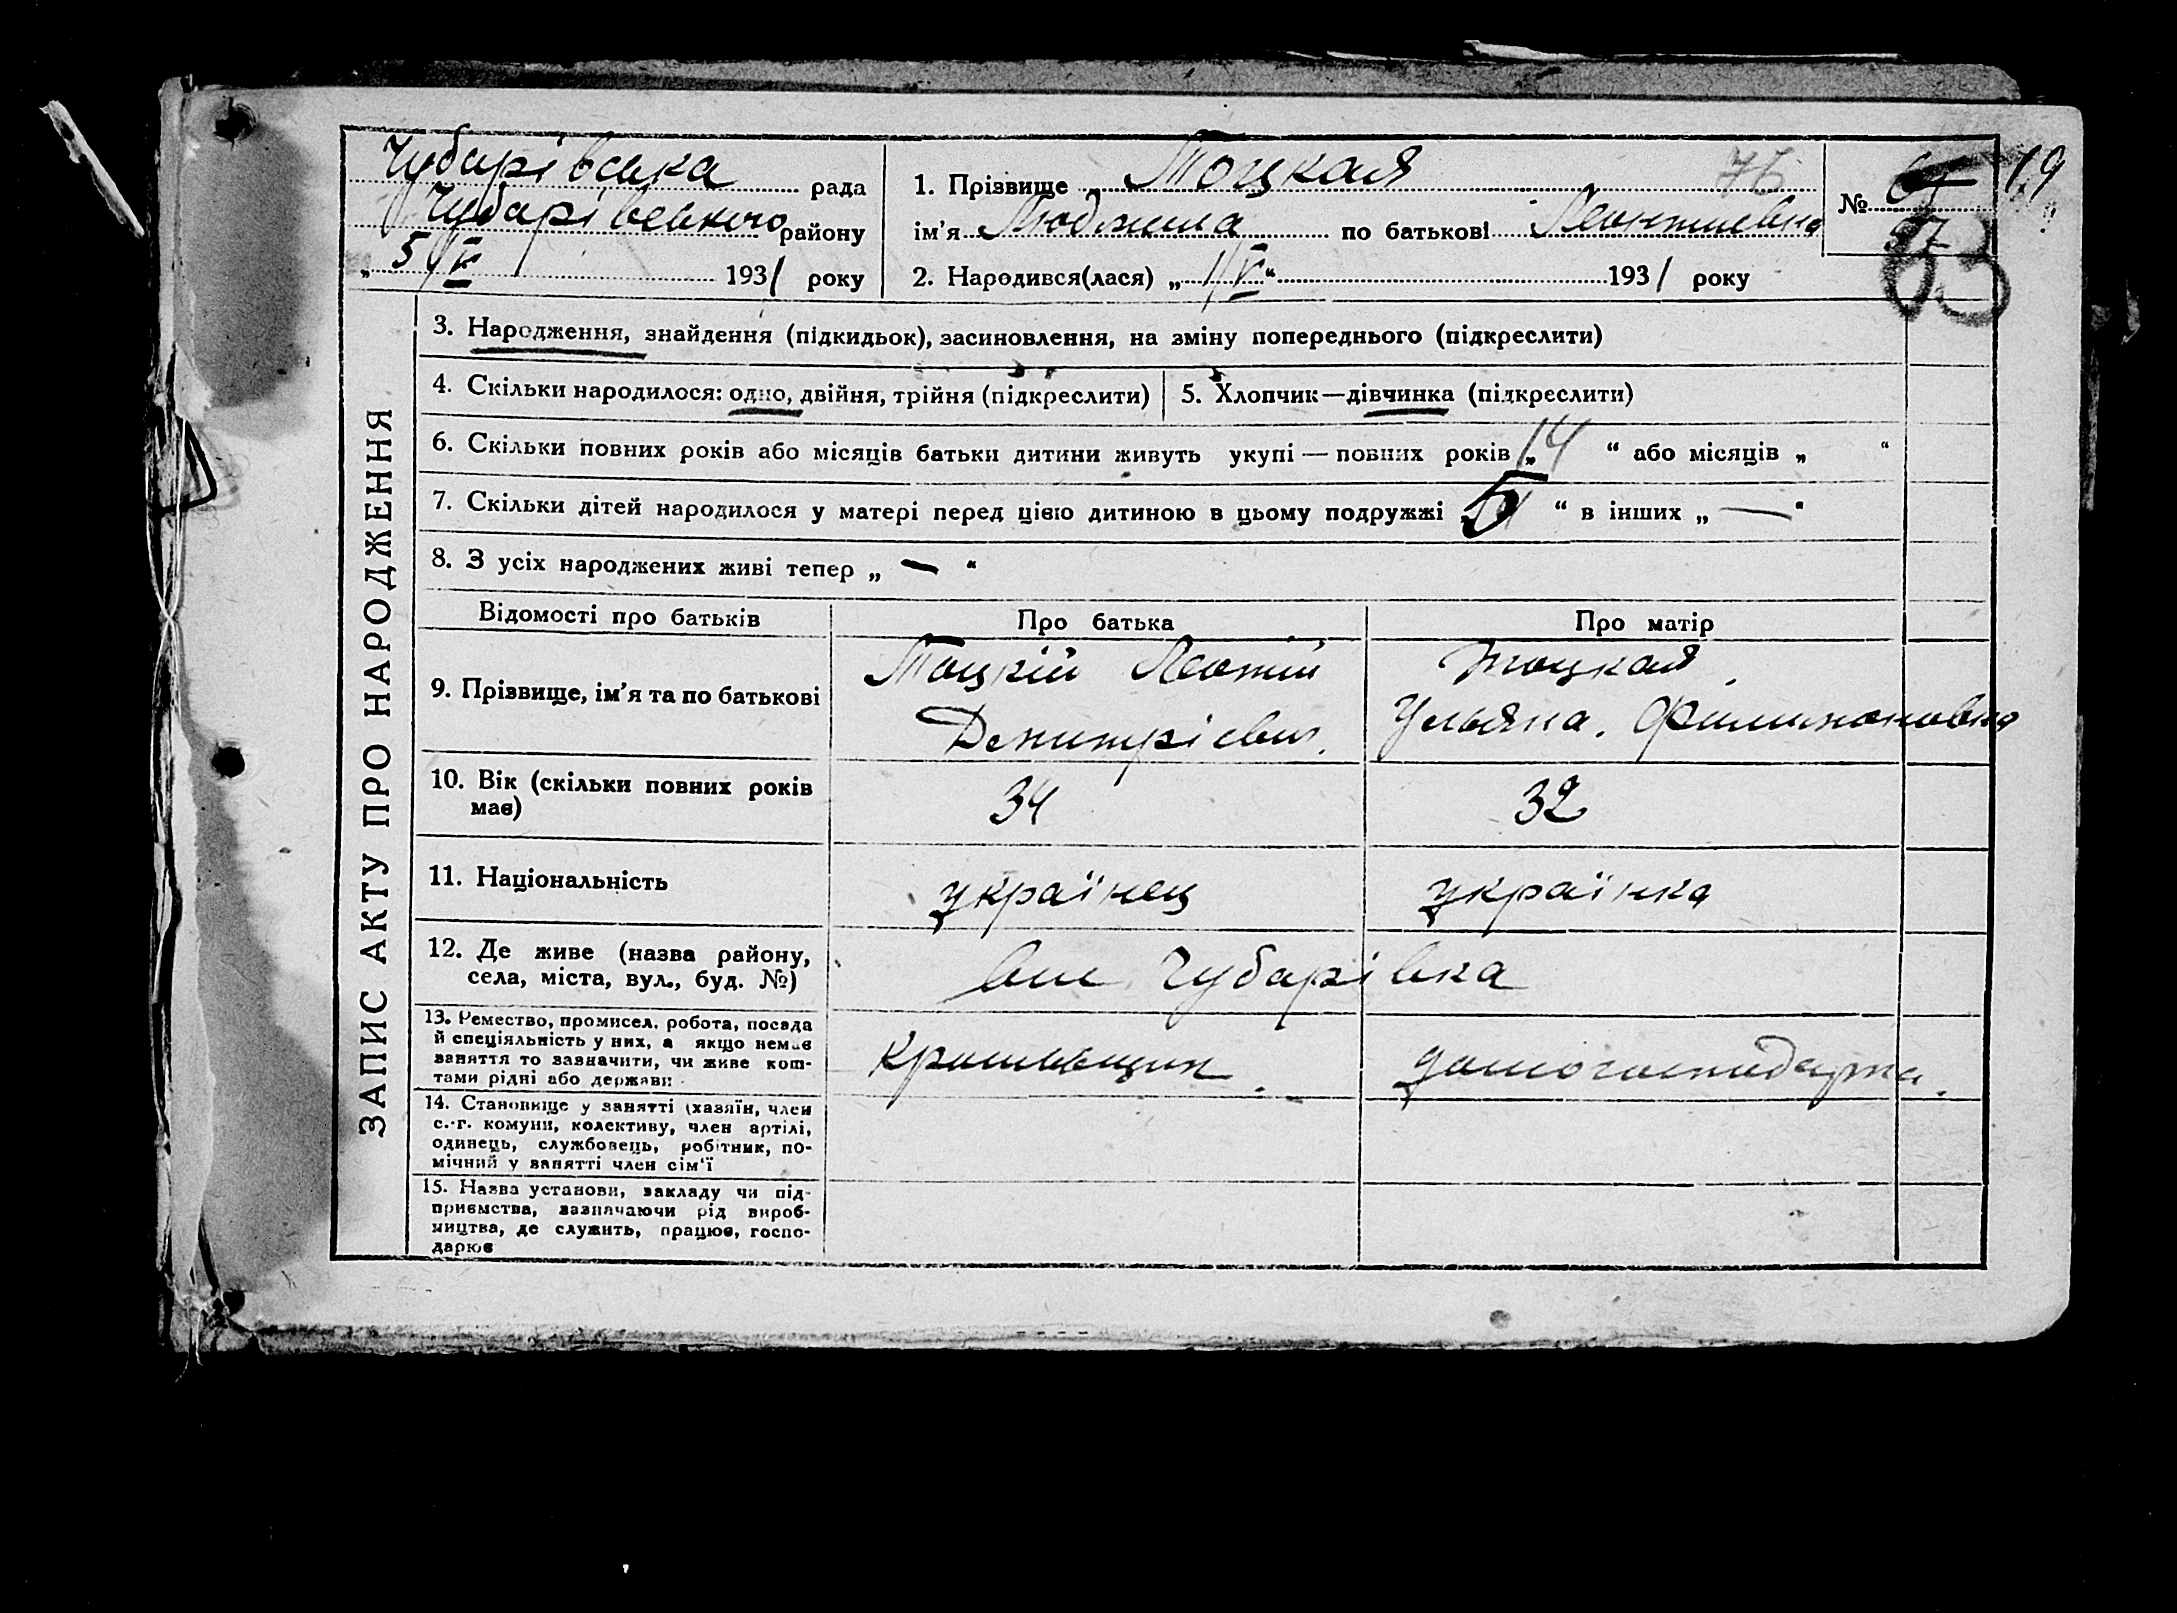 Чубарівська рада
Чубарівського району
„ 5/V 1931 року
1. Прізвище Тоцкая 76
ім'я Людмила по батькові Леонтиевна
2. Народився(лася) „ 1/V “ 1931 року
№ 19
63
ЗАПИС АКТУ ПРО НАРОДЖЕННЯ
3. Народження, знайдення (підкидьок), засиновлення, на зміну попереднього (підкреслити)
4. Скільки народилося: одно, двійня, трійня (підкреслити)
5. Хлопчик—дівчинка (підкреслити)
6. Скільки повних років або місяців батьки дитини живуть укупі — повних років „ 14 “ або місяців „ “
7. Скільки дітей народилося у матері перед цією дитиною в цьому подружжі „ 5 “ в інших „ — “
8. З усіх народжених живі тепер „ — “
Відомості про батьків Про батька Про матір
9. Прізвище, ім'я та по батькові
Тоцкій Леотій
Демитріевич.
Тоцкая
Ульяна. Филимоновна
10. Вік (скільки повних років
має)
34 32
11. Національність українец українка
12. Де живе (назва району,
села, міста, вул., буд. №)
Чубарівка
13. Ремество, промисел, робота, посада
й спеціяльність у них, а якщо немає
заняття то зазначити, чи живе кош-
тами рідні або держави
домогосподарка.
14. Становище у занятті (хазяїн, член
с.-г. комуни, колективу, член артілі,
одинець, службовець, робітник, по-
мічний у занятті член сім'ї
15. Назва установи, закладу чи під-
приємства, зазначаючи рід вироб-
ництва, де служить, працює, госпо-
дарює